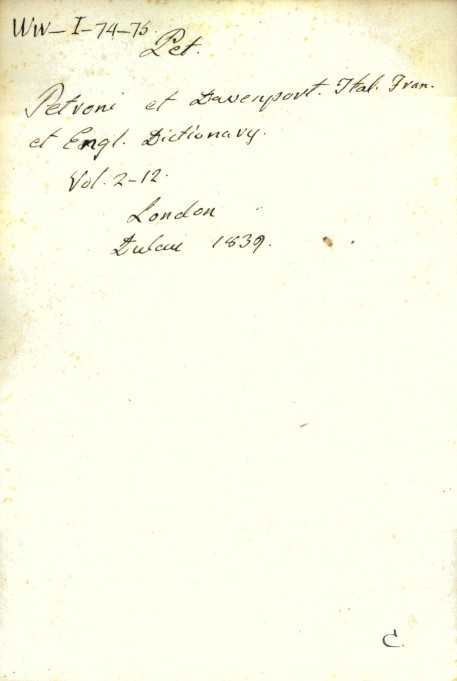 WW-I-74-75
Pet.
Petroni et Davenport. Ital. Fran.
et Engl. Dictionary.
Vol. 2-12.
London
Dulau 1839.
C.